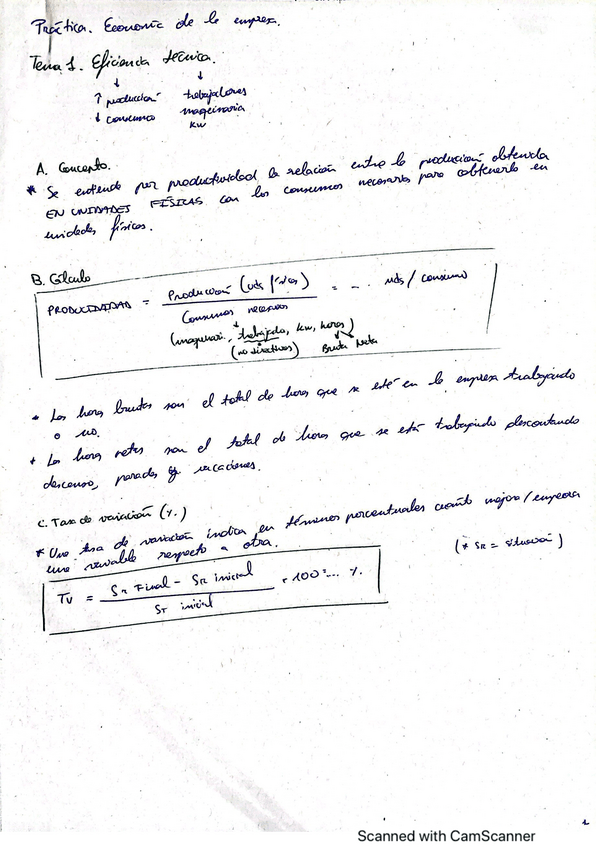 Práctica. Economía de la empresa.
Tema 1. Eficiencia técnica.
↓ ↓
↑ producción trabajadores
↓ consumo maquinaria
kw
A. Concepto.
* Se entiende por productividad la relación entre la producción obtenida
EN UNIDADES FÍSICAS con los consumos necesarios para obtenerlo en
unidades físicas.
B. Cálculo
PRODUCTIVIDAD = Producción (uds físicas) = ... uds / consumo
Consumos necesarios
(maquinari, trabajado, kw, horas)
(no directivos) Bruta Neta
* Las horas brutas son el total de horas que se esté en la empresa trabajando
o no.
* Las horas netas son el total de horas que se está trabajando descontando
descanso, paradas y vacaciones.
C. Tasa de variación (%.)
* Una tasa de variación indica en términos porcentuales cuánto mejora/empeora
una variable respecto a otra. (* SR = situación)
TV = SR Final - SR inicial · 100 = ... %.
ST inicial
1
Scanned with CamScanner